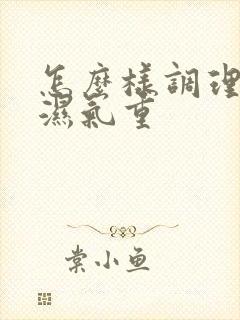 怎麼樣調理
濕氣重
棠小鱼